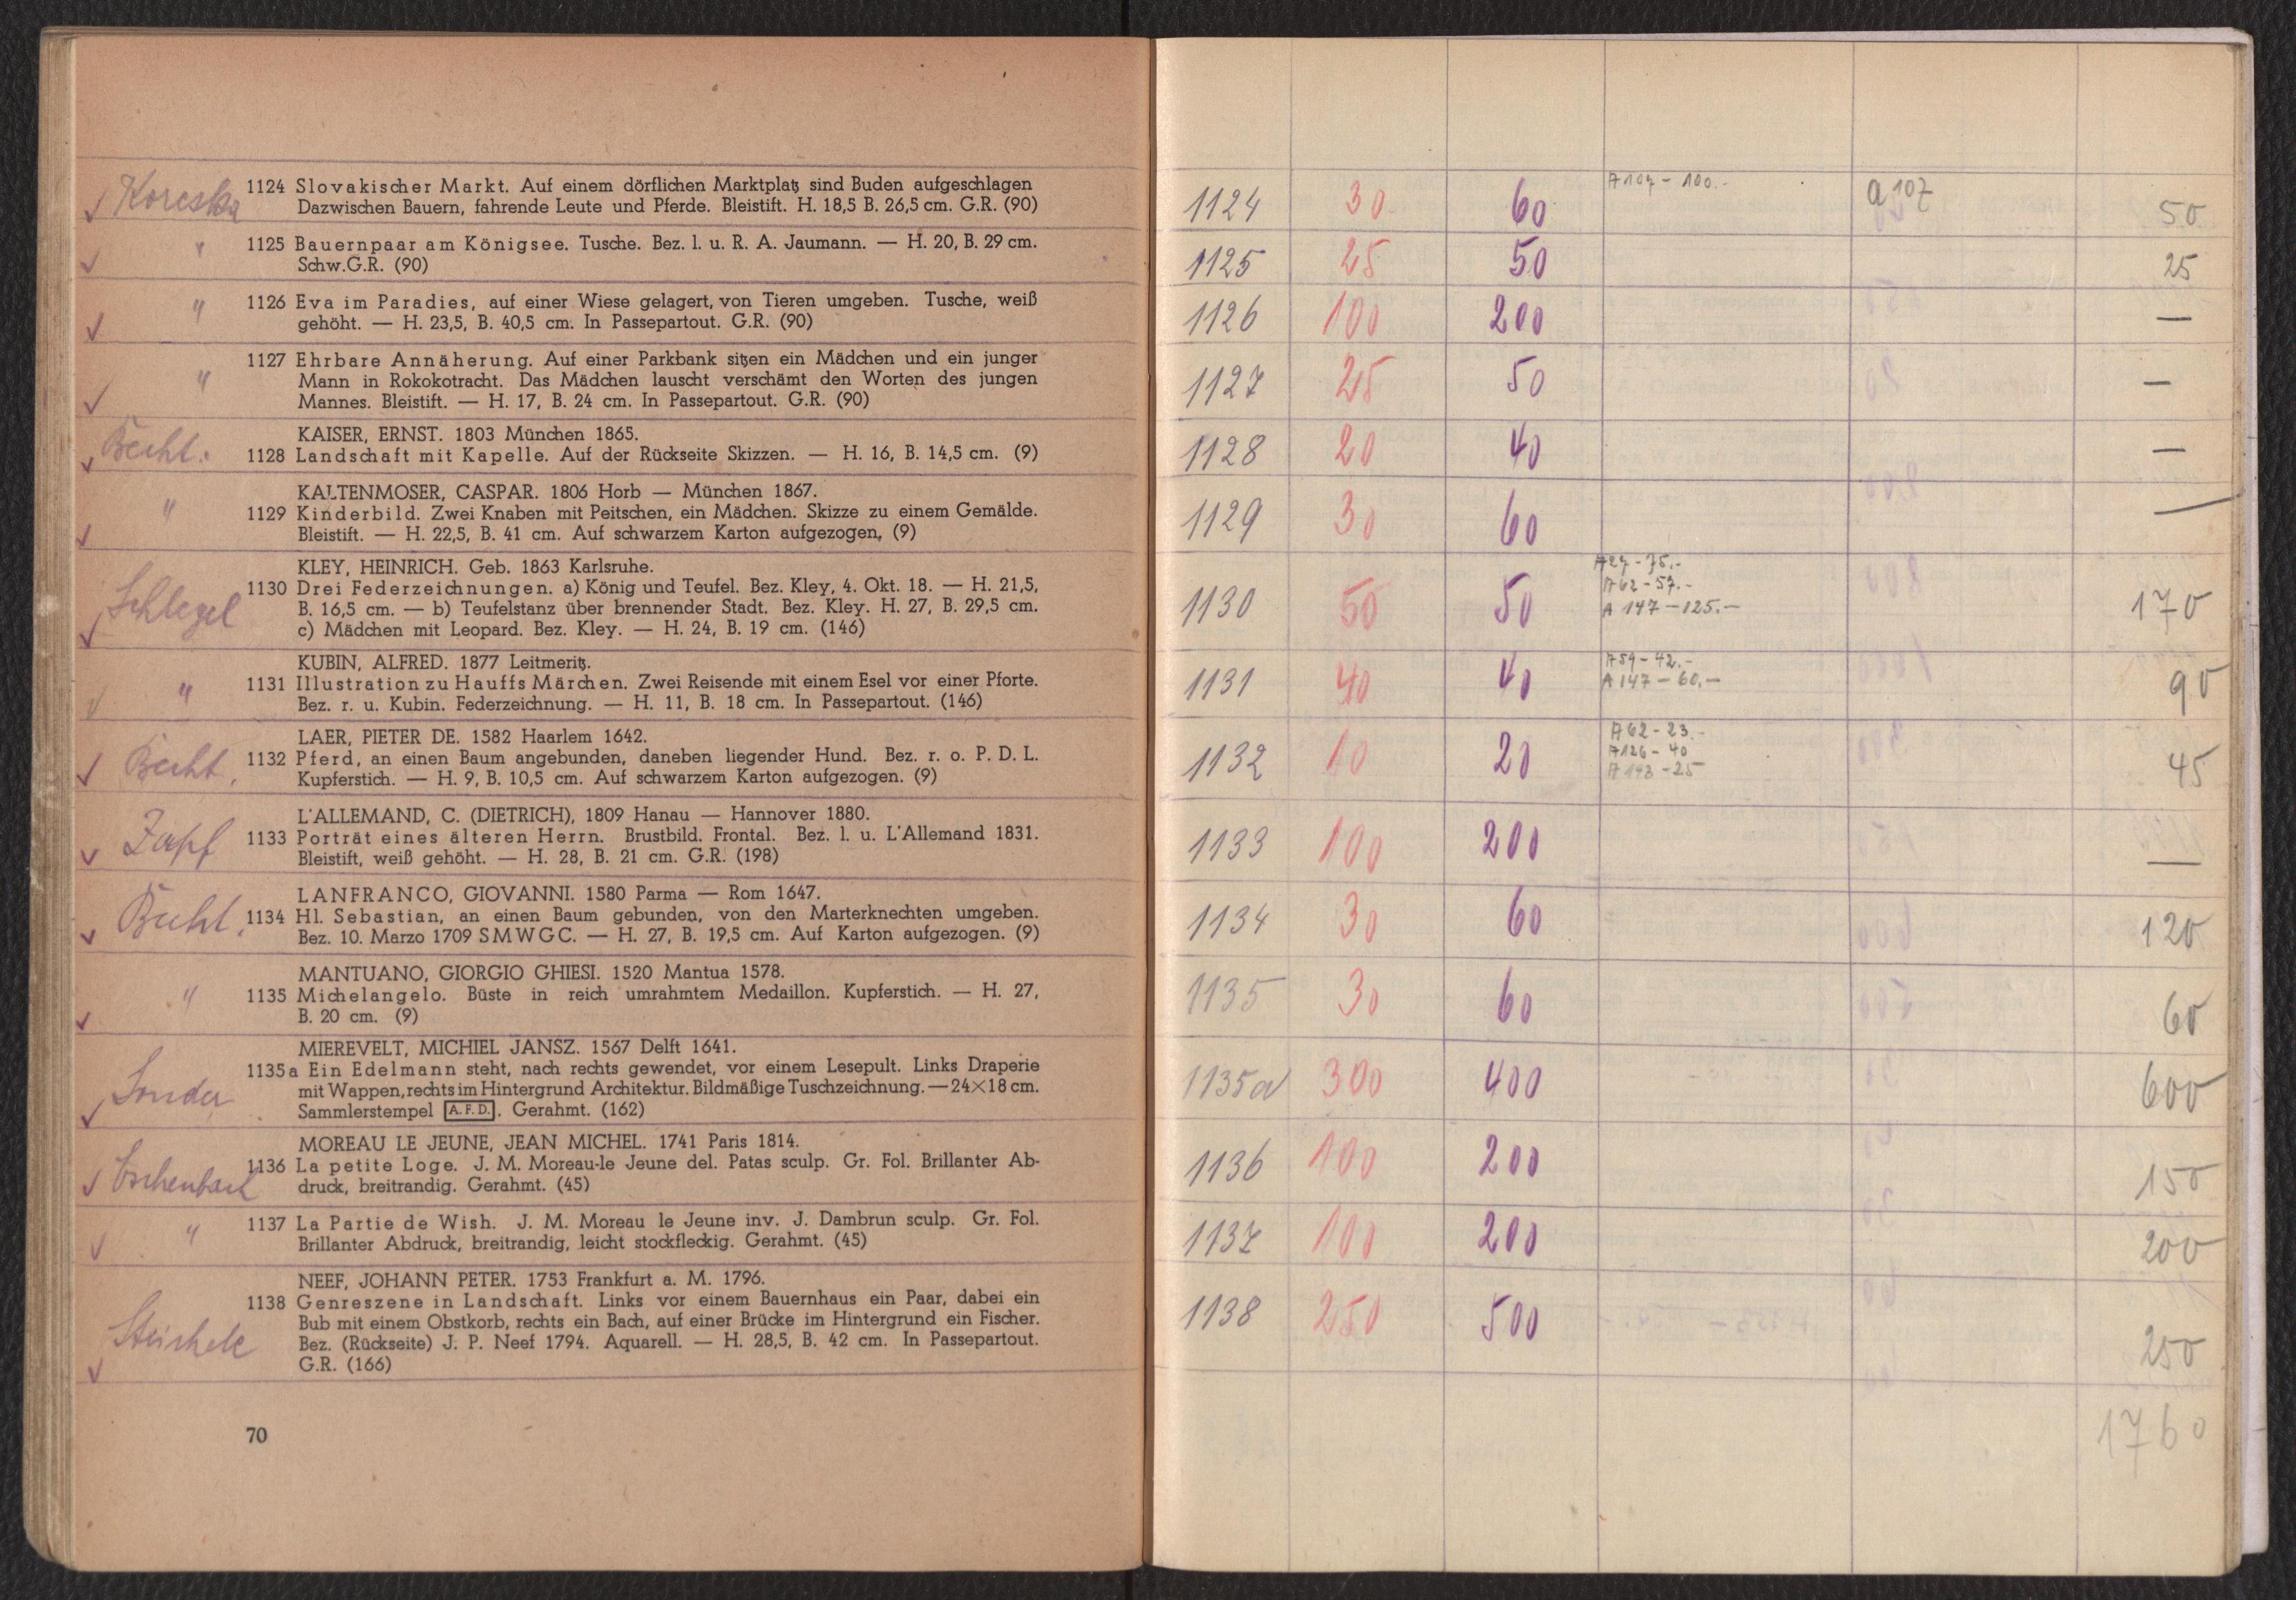 Koreska 1124 Slovakischer Markt. Auf einem dörflichen Marktplatz sind Buden aufgeschlagen
Dazwischen Bauern, fahrende Leute und Pferde. Bleistift. H. 18,5 B. 26,5 cm. G.R. (90)
" 1125 Bauernpaar am Königsee. Tusche. Bez. l. u. R. A. Jaumann. — H. 20, B. 29 cm.
Schw.G.R. (90)
" 1126 Eva im Paradies, auf einer Wiese gelagert, von Tieren umgeben. Tusche, weiß
gehöht. — H. 23,5, B. 40,5 cm. In Passepartout. G.R. (90)
" 1127 Ehrbare Annäherung. Auf einer Parkbank sitzen ein Mädchen und ein junger
Mann in Rokokotracht. Das Mädchen lauscht verschämt den Worten des jungen
Mannes. Bleistift. — H. 17, B. 24 cm. In Passepartout. G.R. (90)
KAISER, ERNST. 1803 München 1865.
1128 Landschaft mit Kapelle. Auf der Rückseite Skizzen. — H. 16, B. 14,5 cm. (9)
KALTENMOSER, CASPAR. 1806 Horb — München 1867.
" 1129 Kinderbild. Zwei Knaben mit Peitschen, ein Mädchen. Skizze zu einem Gemälde.
Bleistift. — H. 22,5, B. 41 cm. Auf schwarzem Karton aufgezogen. (9)
KLEY, HEINRICH. Geb. 1863 Karlsruhe.
Schlegel 1130 Drei Federzeichnungen. a) König und Teufel. Bez. Kley, 4. Okt. 18. — H. 21,5,
B. 16,5 cm. — b) Teufelstanz über brennender Stadt. Bez. Kley. H. 27, B. 29,5 cm.
c) Mädchen mit Leopard. Bez. Kley. — H. 24, B. 19 cm. (146)
KUBIN, ALFRED. 1877 Leitmeritz.
" 1131 Illustration zu Hauffs Märchen. Zwei Reisende mit einem Esel vor einer Pforte.
Bez. r. u. Kubin. Federzeichnung. — H. 11, B. 18 cm. In Passepartout. (146)
LAER, PIETER DE. 1582 Haarlem 1642.
1132 Pferd, an einen Baum angebunden, daneben liegender Hund. Bez. r. o. P. D. L.
Kupferstich. — H. 9, B. 10,5 cm. Auf schwarzem Karton aufgezogen. (9)
L'ALLEMAND, C. (DIETRICH), 1809 Hanau — Hannover 1880.
Zapf 1133 Porträt eines älteren Herrn. Brustbild. Frontal. Bez. l. u. L'Allemand 1831.
Bleistift, weiß gehöht. — H. 28, B. 21 cm. G.R. (198)
LANFRANCO, GIOVANNI. 1580 Parma — Rom 1647.
1134 Hl. Sebastian, an einen Baum gebunden, von den Marterknechten umgeben.
Bez. 10. Marzo 1709 SMWGC. — H. 27, B. 19,5 cm. Auf Karton aufgezogen. (9)
MANTUANO, GIORGIO GHIESI. 1520 Mantua 1578.
" 1135 Michelangelo. Büste in reich umrahmtem Medaillon. Kupferstich. — H. 27,
B. 20 cm. (9)
MIEREVELT, MICHIEL JANSZ. 1567 Delft 1641.
1135a Ein Edelmann steht, nach rechts gewendet, vor einem Lesepult. Links Draperie
mit Wappen, rechts im Hintergrund Architektur. Bildmäßige Tuschzeichnung. — 24×18 cm.
Sammlerstempel A.F.D.. Gerahmt. (162)
MOREAU LE JEUNE, JEAN MICHEL. 1741 Paris 1814.
Eschenbach 1136 La petite Loge. J. M. Moreau-le Jeune del. Patas sculp. Gr. Fol. Brillanter Ab-
druck, breitrandig. Gerahmt. (45)
" 1137 La Partie de Wish. J. M. Moreau le Jeune inv. J. Dambrun sculp. Gr. Fol.
Brillanter Abdruck, breitrandig, leicht stockfleckig. Gerahmt. (45)
NEEF, JOHANN PETER. 1753 Frankfurt a. M. 1796.
1138 Genreszene in Landschaft. Links vor einem Bauernhaus ein Paar, dabei ein
Bub mit einem Obstkorb, rechts ein Bach, auf einer Brücke im Hintergrund ein Fischer.
Bez. (Rückseite) J. P. Neef 1794. Aquarell. — H. 28,5, B. 42 cm. In Passepartout.
G.R. (166)
70
1124 30 60 A107 - 100.- a 107 50
1125 25 50 25
1126 100 200 —
1127 25 50 —
1128 20 40 —
1129 30 60 —
A27 - 75.-
A62 - 57.-
1130 50 50 A 147 - 125.- 170
A59 - 42.-
1131 40 40 A 147 - 60.- 90
A62 - 23.-
1132 10 20 A126 - 40 45
A143 - 25
1133 100 200 —
1134 30 60 120
1135 30 60 60
1135a 300 400 600
1136 100 200 150
1137 100 200 200
1138 250 500 250
1760